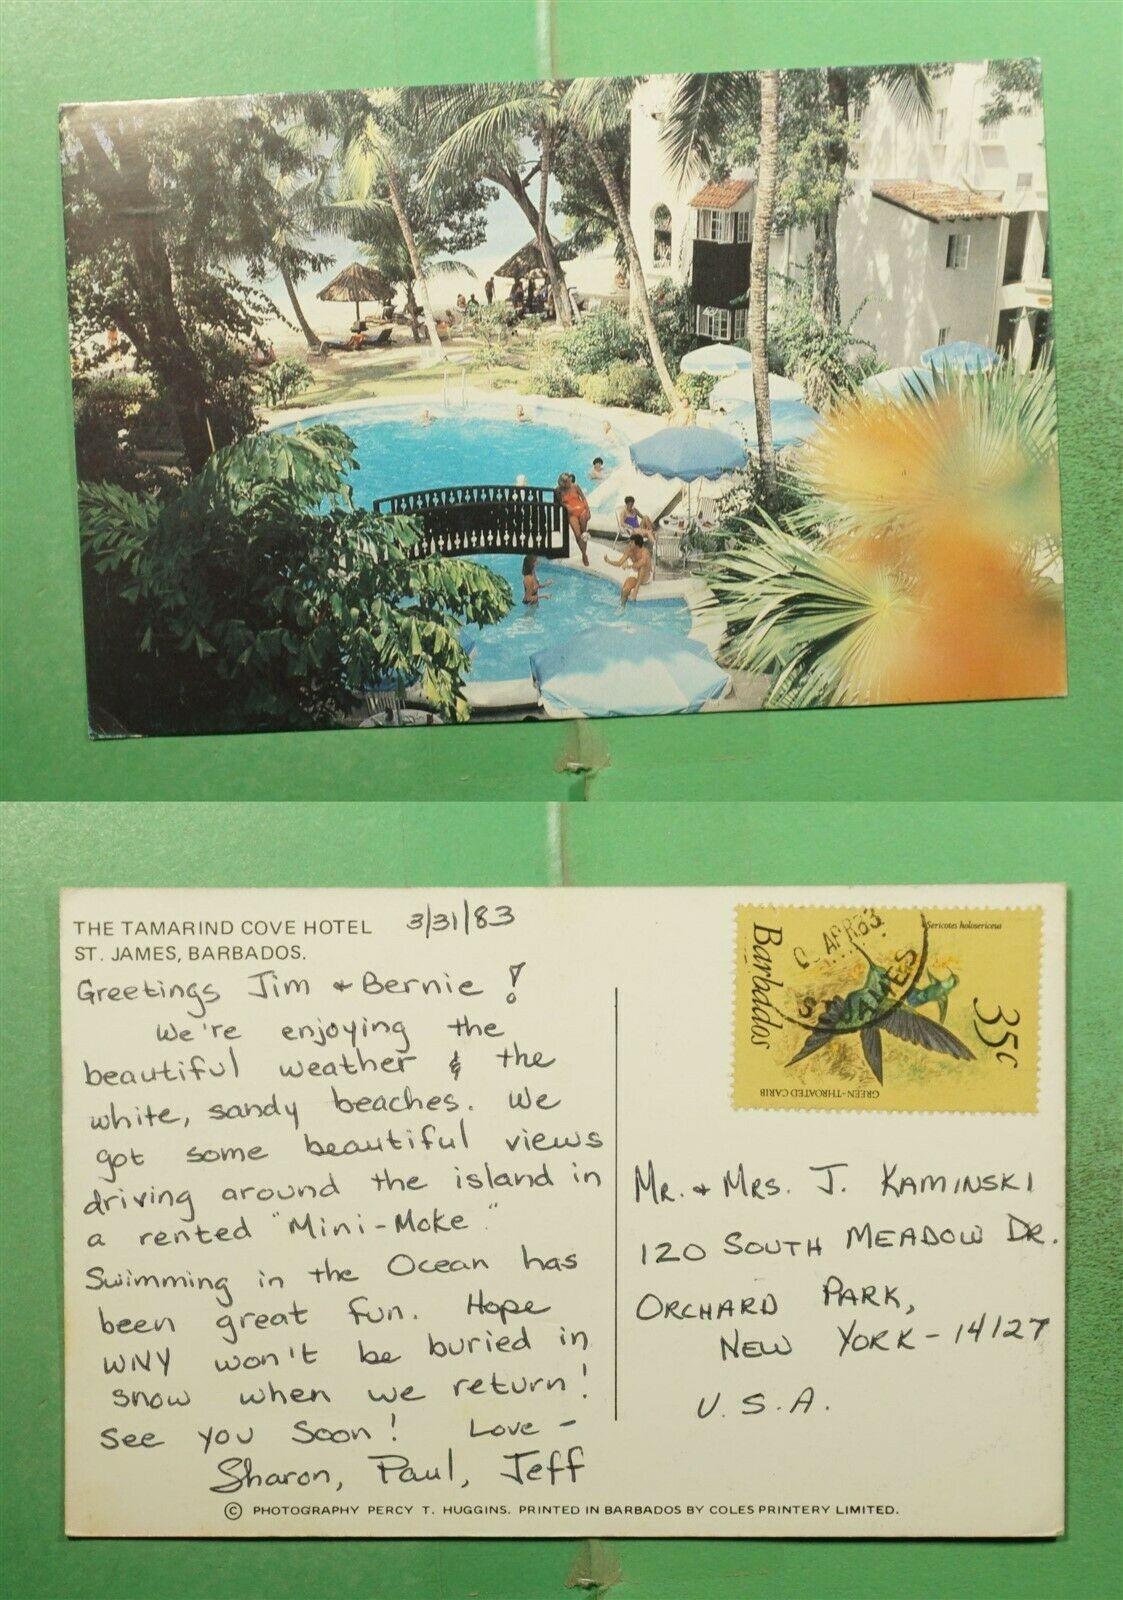 THE TAMARIND COVE HOTEL 3/31/83
ST. JAMES, BARBADOS.
Greetings Jim + Bernie!
We're enjoying the
beautiful weather & the
white, sandy beaches. We
got some beautiful views
driving around the island in
a rented "Mini-Moke."
Swimming in the Ocean has
been great fun. Hope
WNY won't be buried in
snow when we return!
See you soon! Love -
Sharon, Paul, Jeff
© PHOTOGRAPHY PERCY T. HUGGINS. PRINTED IN BARBADOS BY COLES PRINTERY LIMITED.
Sericotes holosericeus
Barbados
35c
GREEN-THROATED CARIB
APR 83
ST. JAMES
MR. + MRS. J. KAMINSKI
120 SOUTH MEADOW DR.
ORCHARD PARK,
NEW YORK - 14127
U.S.A.